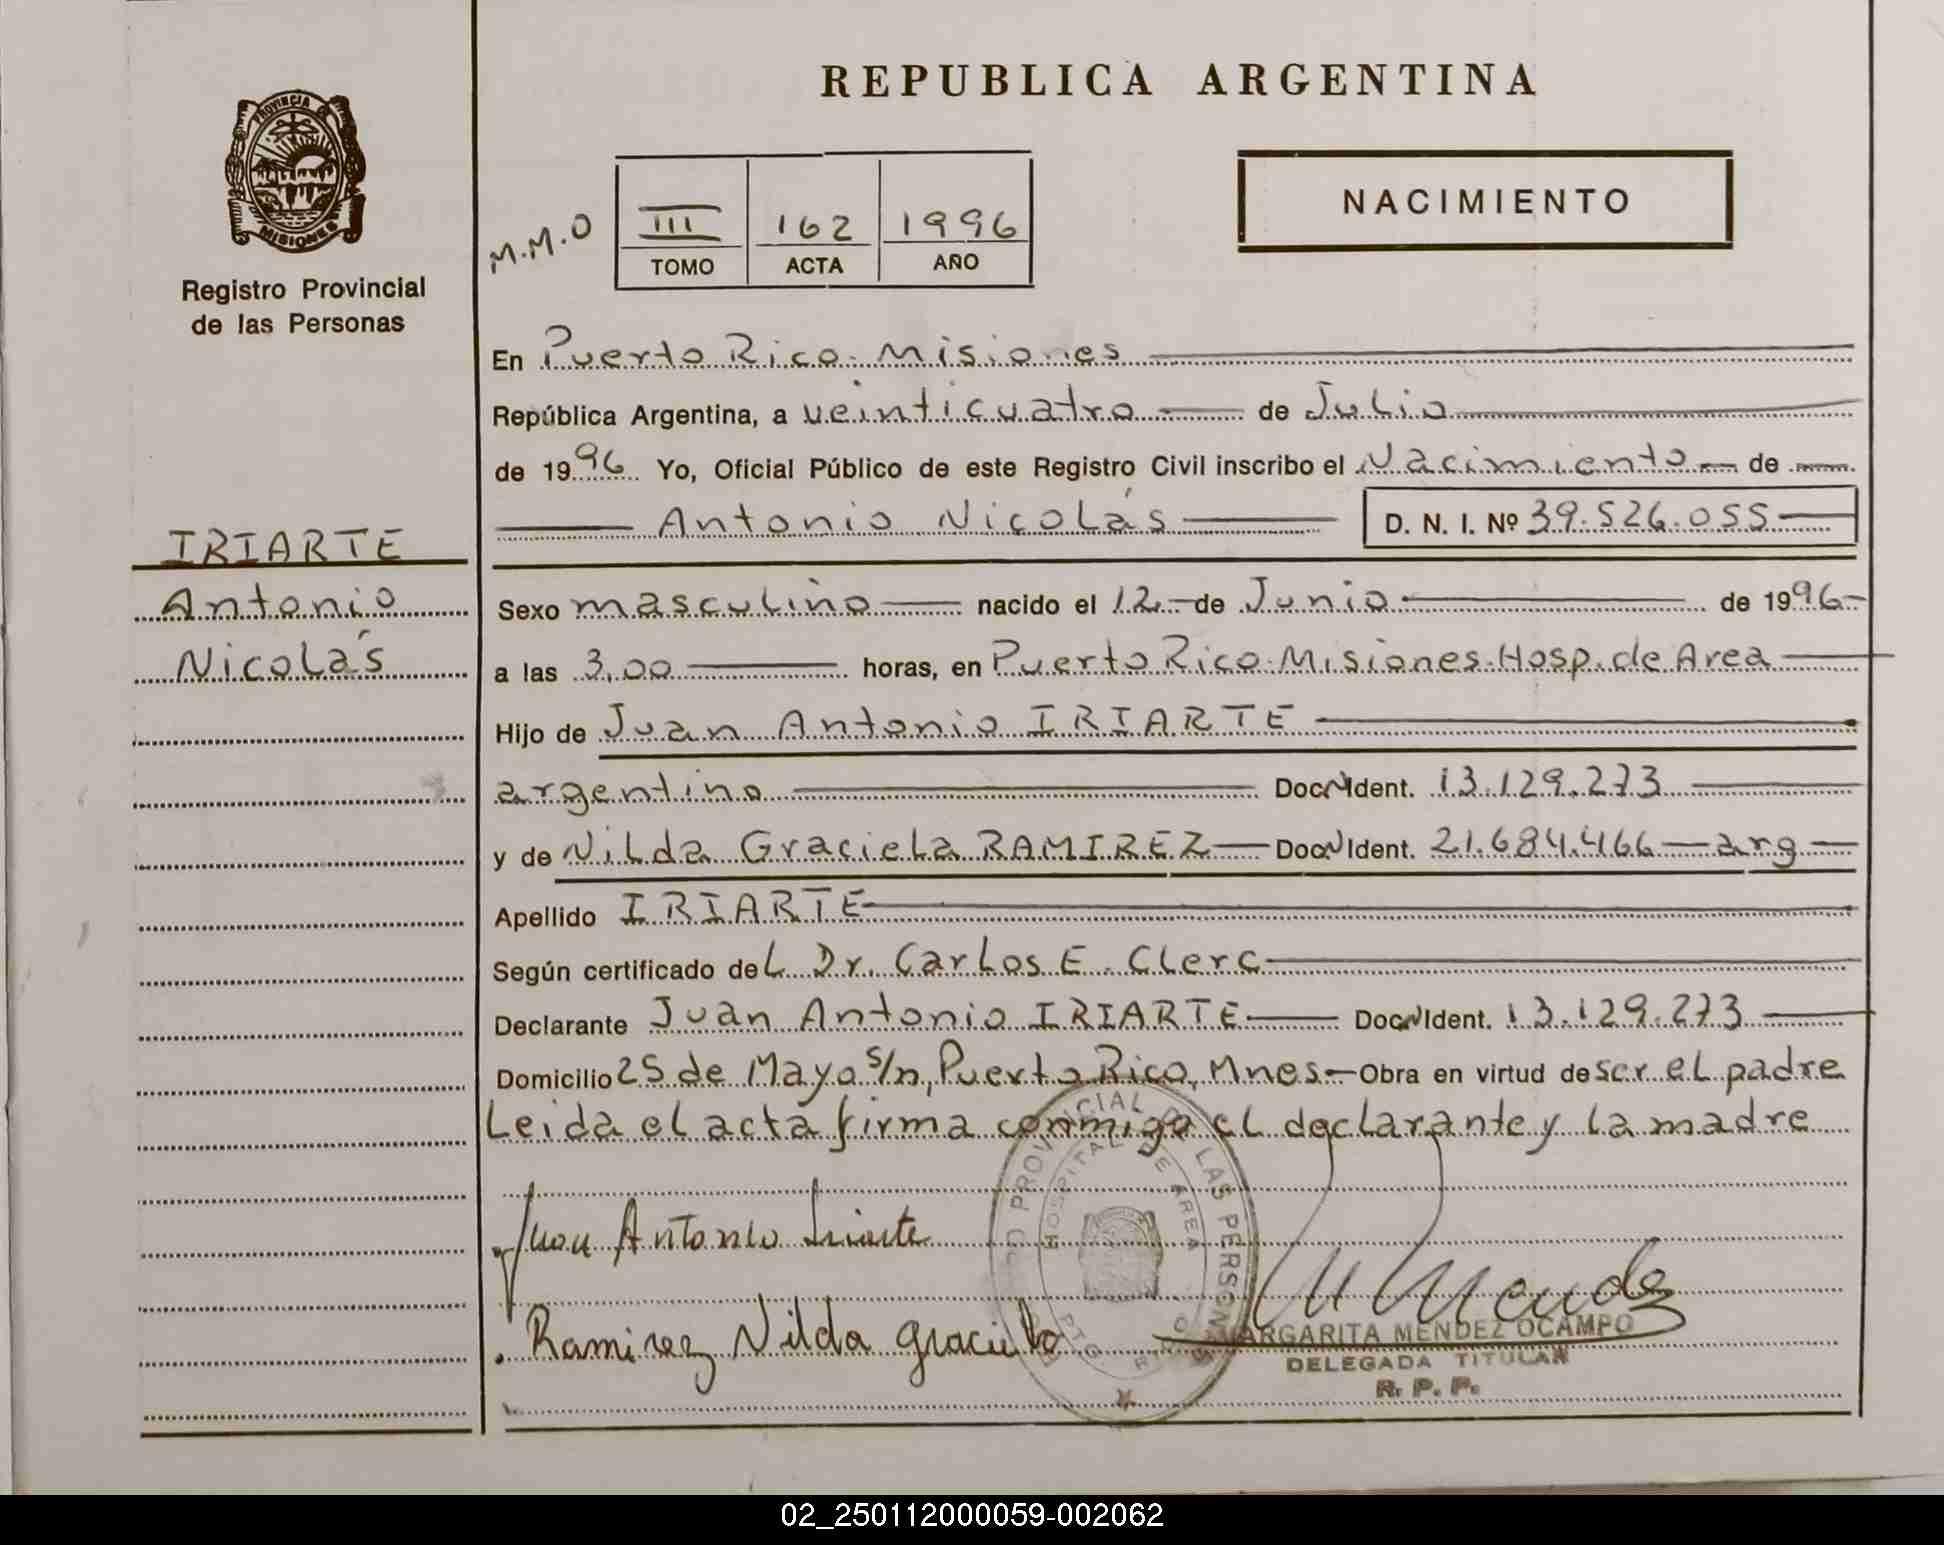 REPUBLICA ARGENTINA
PROVINCIA DE
MISIONES
Registro Provincial
de las Personas
NACIMIENTO
M.M.O
III 162 1996
TOMO ACTA AÑO
En Puerto Rico. Misiones
República Argentina, a veinticuatro de Julio
de 1996 Yo, Oficial Público de este Registro Civil inscribo el Nacimiento de
Antonio Nicolás D. N. I. Nº 39.526.055
IRIARTE
Antonio
Nicolás
Sexo masculino nacido el 12 de Junio de 1996
a las 3,00 horas, en Puerto Rico. Misiones. Hosp. de Area
Hijo de Juan Antonio IRIARTE
argentino Doc. Ident. 13.129.273
y de Nilda Graciela RAMIREZ Doc. Ident. 21.684.466 arg
Apellido IRIARTE
Según certificado del Dr. Carlos E. Clerc
Declarante Juan Antonio IRIARTE Doc. Ident. 13.129.273
Domicilio 25 de Mayo s/n, Puerto Rico, Mnes. Obra en virtud de ser el padre
Leida el acta firma conmigo el declarante y la madre
Juan Antonio Iriarte
Ramirez Nilda Graciela
PROVINCIAL DE LAS PERSONAS
HOSPITAL DE AREA
PTO. RICO
M Mendez
MARGARITA MENDEZ OCAMPO
DELEGADA TITULAR
R. P. P.
02_250112000059-002062